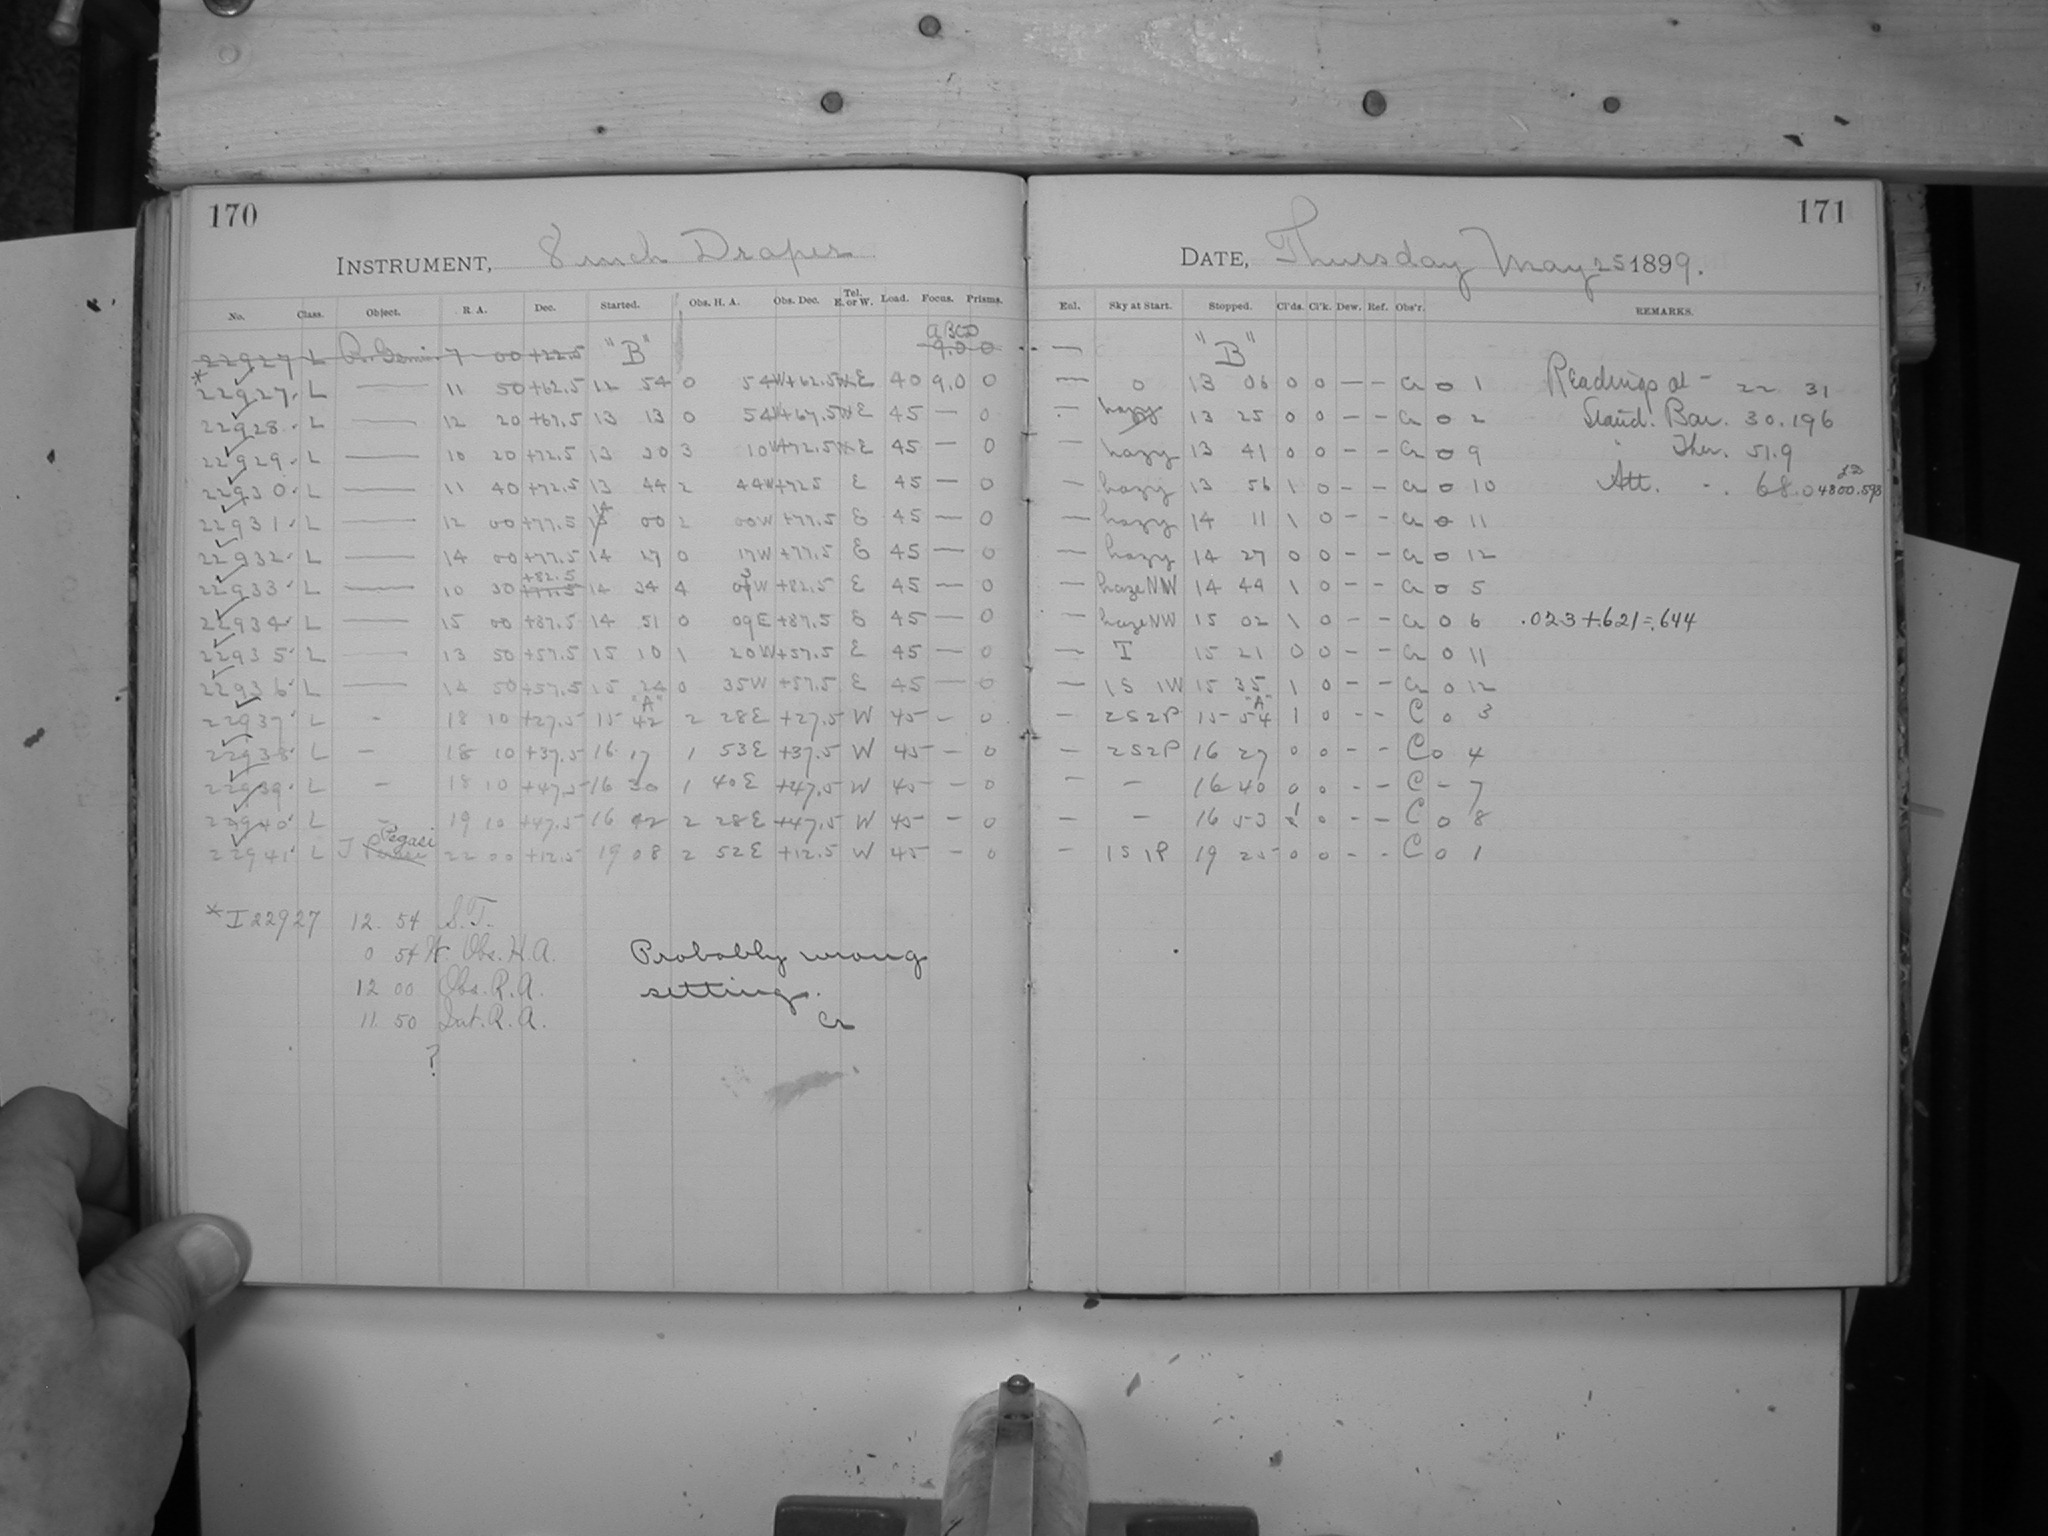 170
INSTRUMENT, 8 inch Draper
No. Class. Object. R. A. Dec. Started. Obs. H. A. Obs. Dec. Tel. E. or W. Load. Focus. Prisms.
22927 L 7 00 +22.5 "B" 9.0 0
* 22927. L — 11 50 +62.5 12 54 0 54W +62.5 E 40 9.0 0
22928. L — 12 20 +67.5 13 13 0 54W +67.5 E 45 — 0
22929. L — 10 20 +72.5 13 30 3 10W +72.5 E 45 — 0
22930. L — 11 40 +72.5 13 44 2 44W +725 E 45 — 0
22931. L — 12 00 +77.5 14 00 2 00W +77.5 E 45 — 0
22932. L — 14 00 +77.5 14 17 0 17W +77.5 E 45 — 0
22933. L — 10 30 +82.5 14 34 4 03W +82.5 E 45 — 0
22934. L — 15 00 +87.5 14 51 0 09E +87.5 E 45 — 0
22935. L — 13 50 +57.5 15 10 1 20W +57.5 E 45 — 0
22936. L — 14 50 +57.5 15 24 0 35W +57.5 E 45 — 0
"A"
22937. L - 18 10 +27.5 15 42 2 28E +27.5 W 45 - 0
22938. L - 18 10 +37.5 16 17 1 53E +37.5 W 45 - 0
22939. L - 18 10 +47.5 16 30 1 40E +47.5 W 45 - 0
22940. L - 19 10 +47.5 16 42 2 28E +47.5 W 45 - 0
22941. L J Pegasi 22 00 +12.5 19 08 2 52E +12.5 W 45 - 0
* I 22927 12. 54 S.T.
0 54W Obs. H.A.
12 00 Obs. R.A.
11. 50 Int. R.A.
?
Probably wrong
setting.
Cr
171
DATE, Thursday May 25 1899.
Enl. Sky at Start. Stopped. Cl'ds. Cl'k. Dew. Ref. Obs'r. REMARKS.
— "B"
— 0 13 06 0 0 — — Cr 0 1 Readings at - 22 31
— hazy 13 25 0 0 — — Cr 0 2 Stand. Bar. 30.196
— hazy 13 41 0 0 - - Cr 0 9 Ther. 51.9
— hazy 13 56 1 0 - - Cr 0 10 Att. - . 68.0
— hazy 14 11 1 0 - - Cr 0 11
— hazy 14 27 0 0 - - Cr 0 12
— haze NW 14 44 1 0 - - Cr 0 5
— haze NW 15 02 1 0 - - Cr 0 6 .023+.621=.644
— T 15 21 0 0 - - Cr 0 11
— 1S 1W 15 35 1 0 - - Cr 0 12
"A"
— 2S2P 15 54 1 0 - - C 0 3
— 2S2P 16 27 0 0 - - C 0 4
- - 16 40 0 0 - - C - 7
- - 16 53 1 0 - - C 0 8
- 1S 1P 19 25 0 0 - - C 0 1